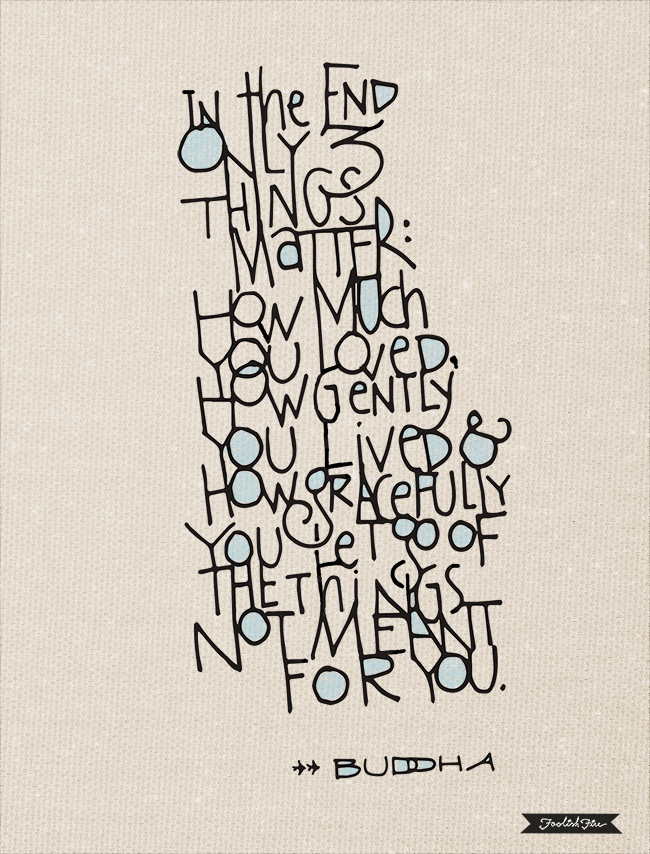 IN the END
ONLY 3
THINGS
MaTTER:
HOW MUch
YOU LOveD,
HOW GeNTLY
YOU LiveD &
HOW gRACeFULLY
YOU LeT GO OF
THE THiNGS
NOT MEANT
FOR YOU.
BUDDHA
Foolish Fire